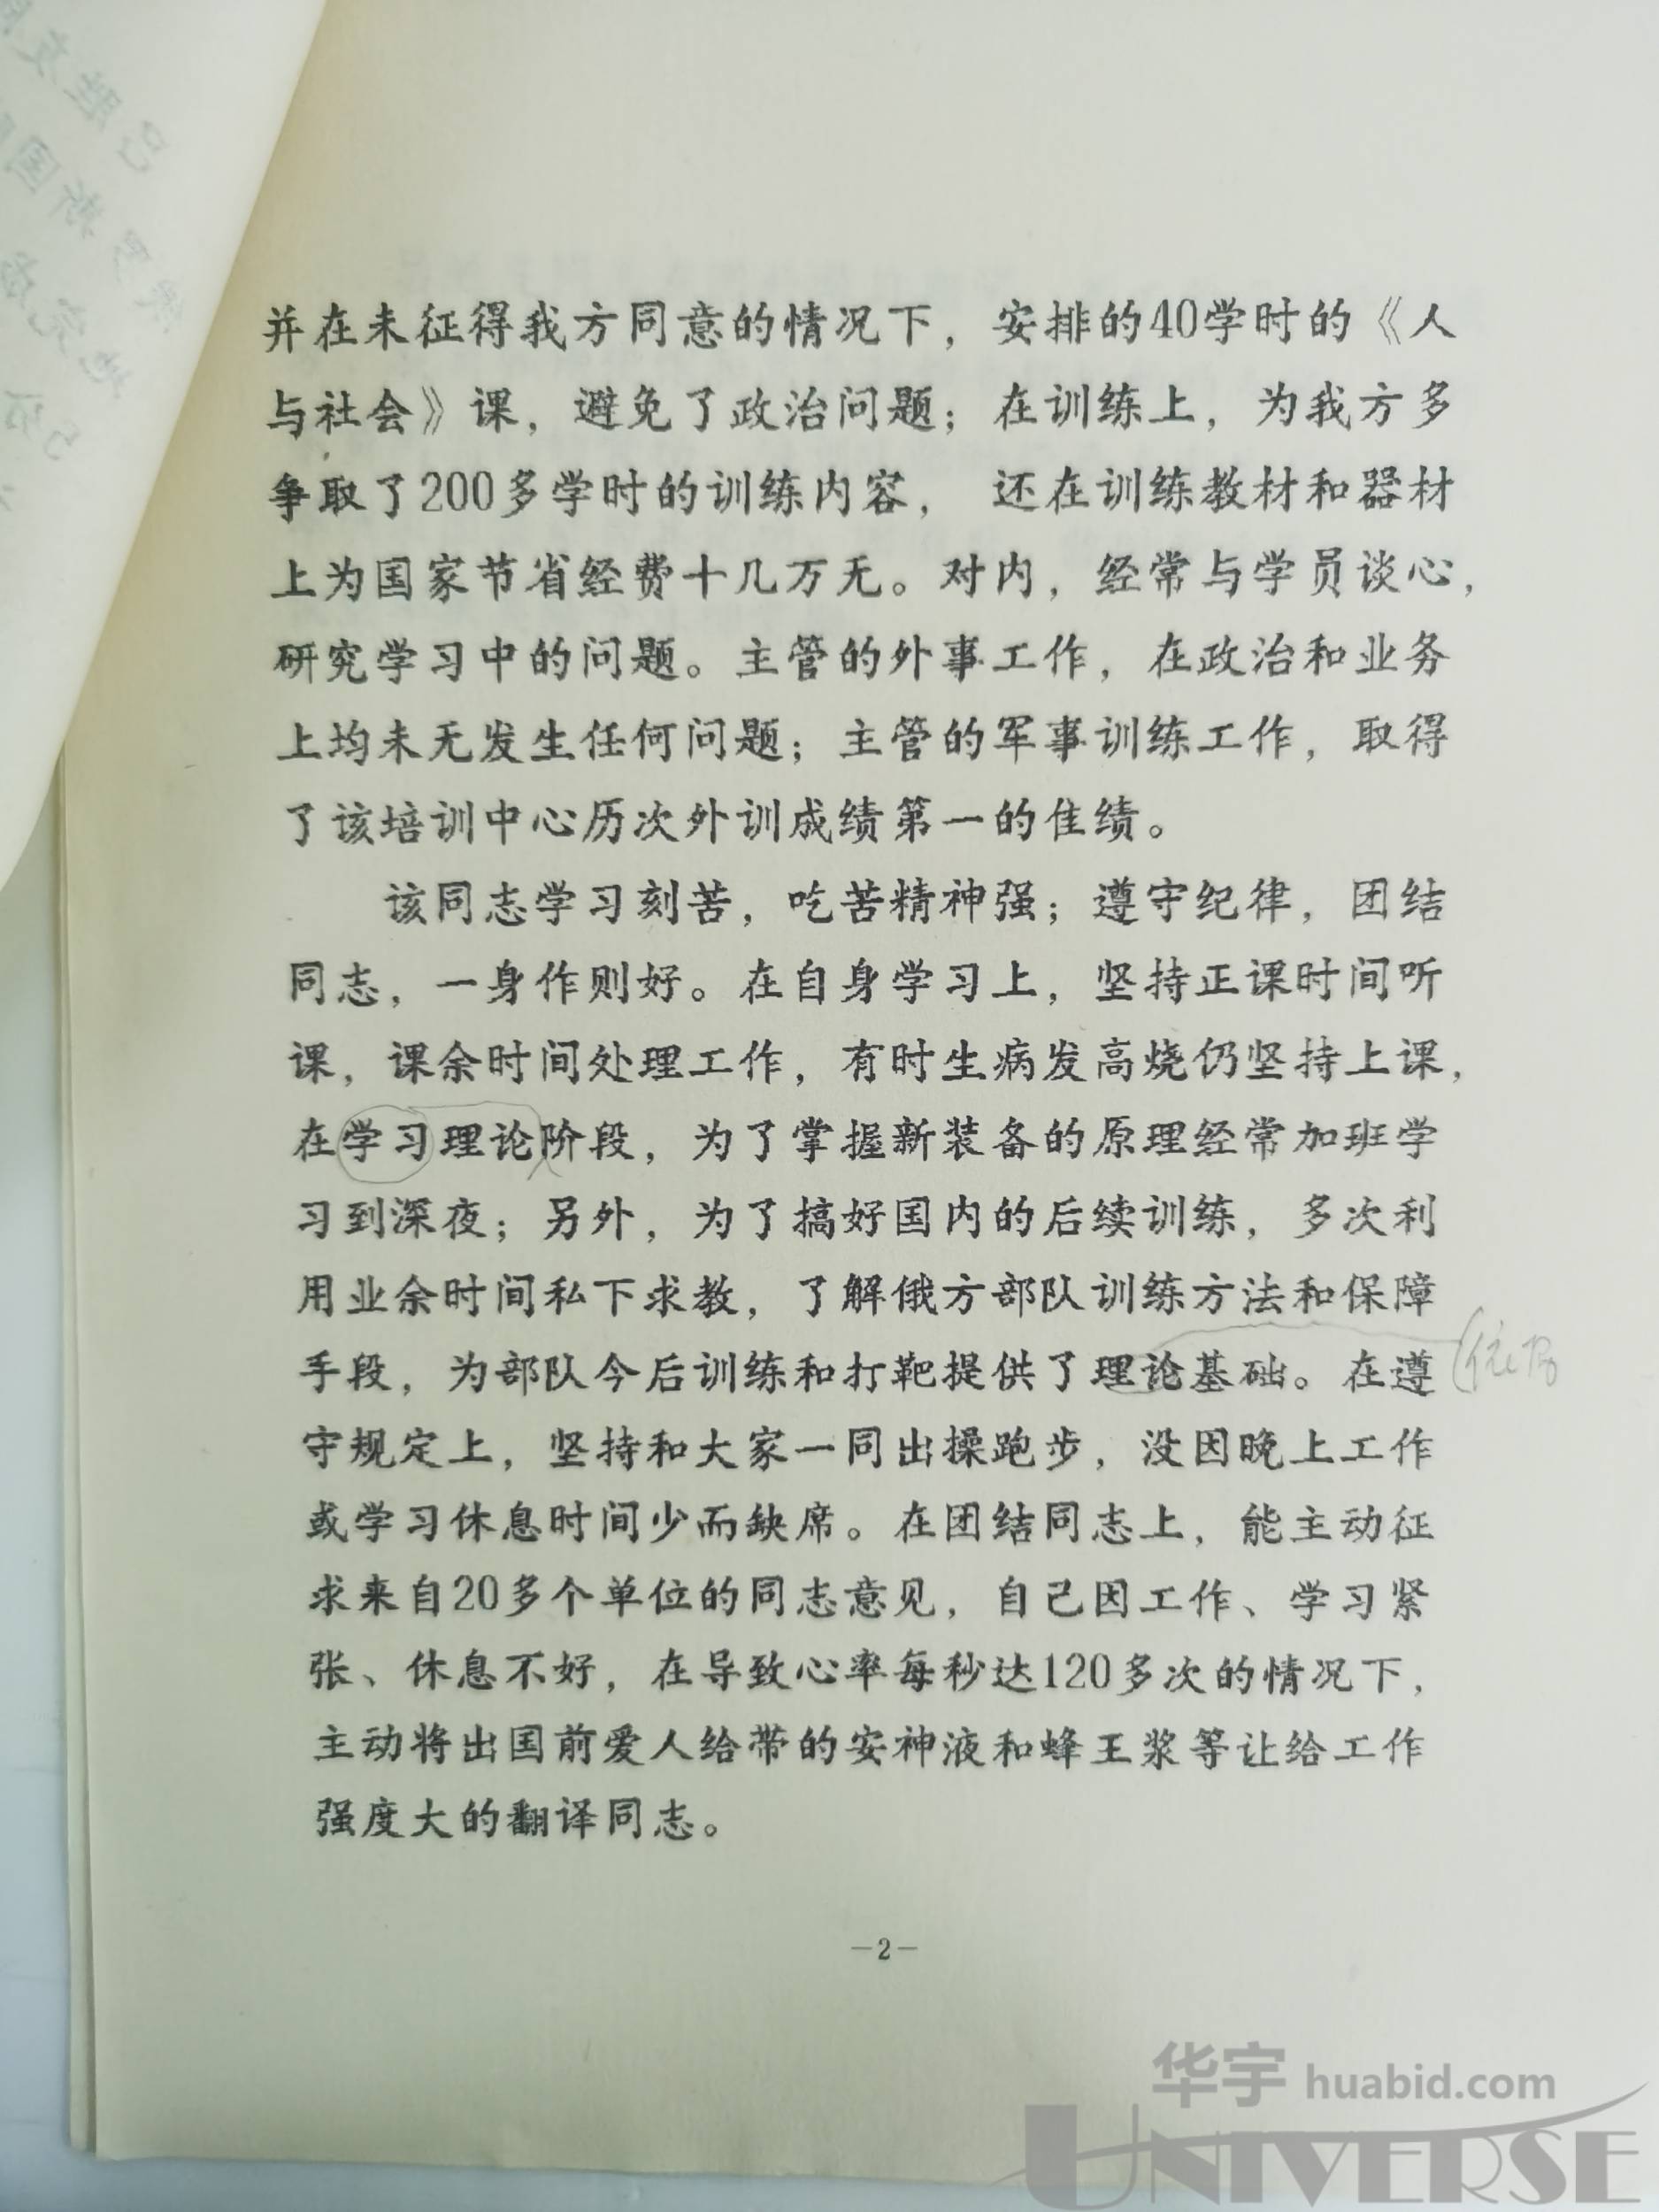 并在未征得我方同意的情况下，安排的40学时的《人
与社会》课，避免了政治问题；在训练上，为我方多
争取了200多学时的训练内容，还在训练教材和器材
上为国家节省经费十几万无。对内，经常与学员谈心，
研究学习中的问题。主管的外事工作，在政治和业务
上均未无发生任何问题；主管的军事训练工作，取得
了该培训中心历次外训成绩第一的佳绩。
该同志学习刻苦，吃苦精神强；遵守纪律，团结
同志，一身作则好。在自身学习上，坚持正课时间听
课，课余时间处理工作，有时生病发高烧仍坚持上课，
在学习理论阶段，为了掌握新装备的原理经常加班学
习到深夜；另外，为了搞好国内的后续训练，多次利
用业余时间私下求教，了解俄方部队训练方法和保障
手段，为部队今后训练和打靶提供了理论基础。在遵
守规定上，坚持和大家一同出操跑步，没因晚上工作
或学习休息时间少而缺席。在团结同志上，能主动征
求来自20多个单位的同志意见，自己因工作、学习紧
张、休息不好，在导致心率每秒达120多次的情况下，
主动将出国前爱人给带的安神液和蜂王浆等让给工作
强度大的翻译同志。
－2－
华宇 huabid.com
UNIVERSE